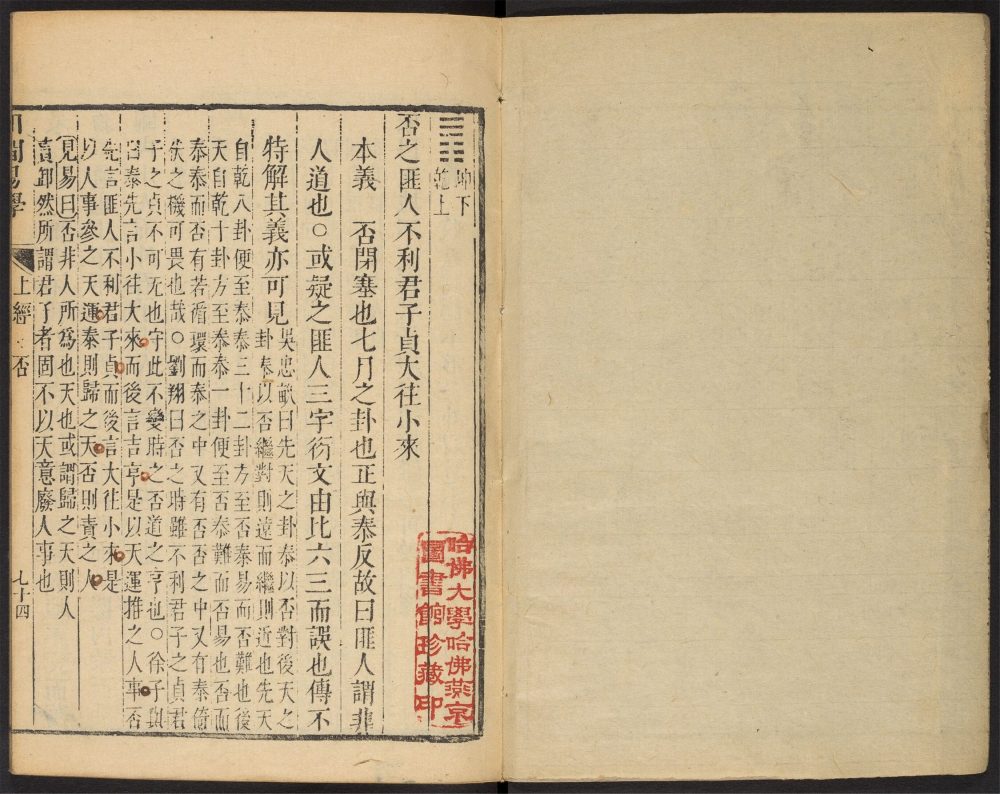 坤下
乾上
否之匪人不利君子貞大往小來
本義　否閉塞也七月之卦也正與泰反故曰匪人謂非
人道也○或疑之匪人三字衍文由比六三而誤也傳不
特解其義亦可見
吳忠敏曰先天之卦泰以否對後天之
卦泰以否繼對則遠而繼則近也先天
自乾八卦便至泰泰三十二卦方至否泰易而否難也後
天自乾十卦方至泰泰一卦便至否泰難而否易也否而
泰泰而否有若循環而泰之中又有否否之中又有泰倚
伏之機可畏也哉○劉翔曰否之時雖不利君子之貞君
子之貞不可无也守此不變時之否道之亨也○徐子與
曰泰先言小往大來而後言吉亨是以天運推之人事否
先言匪人不利君子貞而後言大往小來是
以人事參之天運泰則歸之天否則責之人
見易曰否非人所為也天也或謂歸之天則人
責卸然所謂君子者固不以天意廢人事也
易學
上經
否
七十四
哈佛大學哈佛燕京
圖書館珍藏印